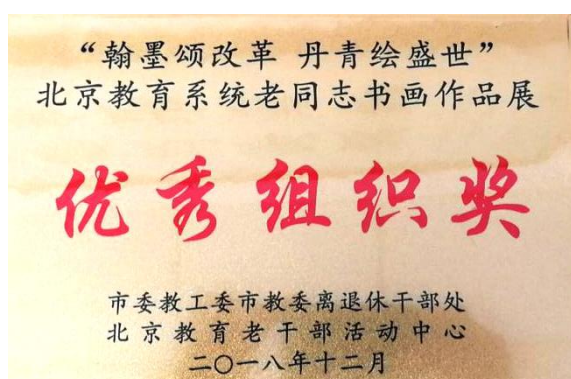 “翰墨颂改革 丹青绘盛世”
北京教育系统老同志书画作品展
优秀组织奖
市委教工委市教委离退休干部处
北京教育老干部活动中心
二〇一八年十二月